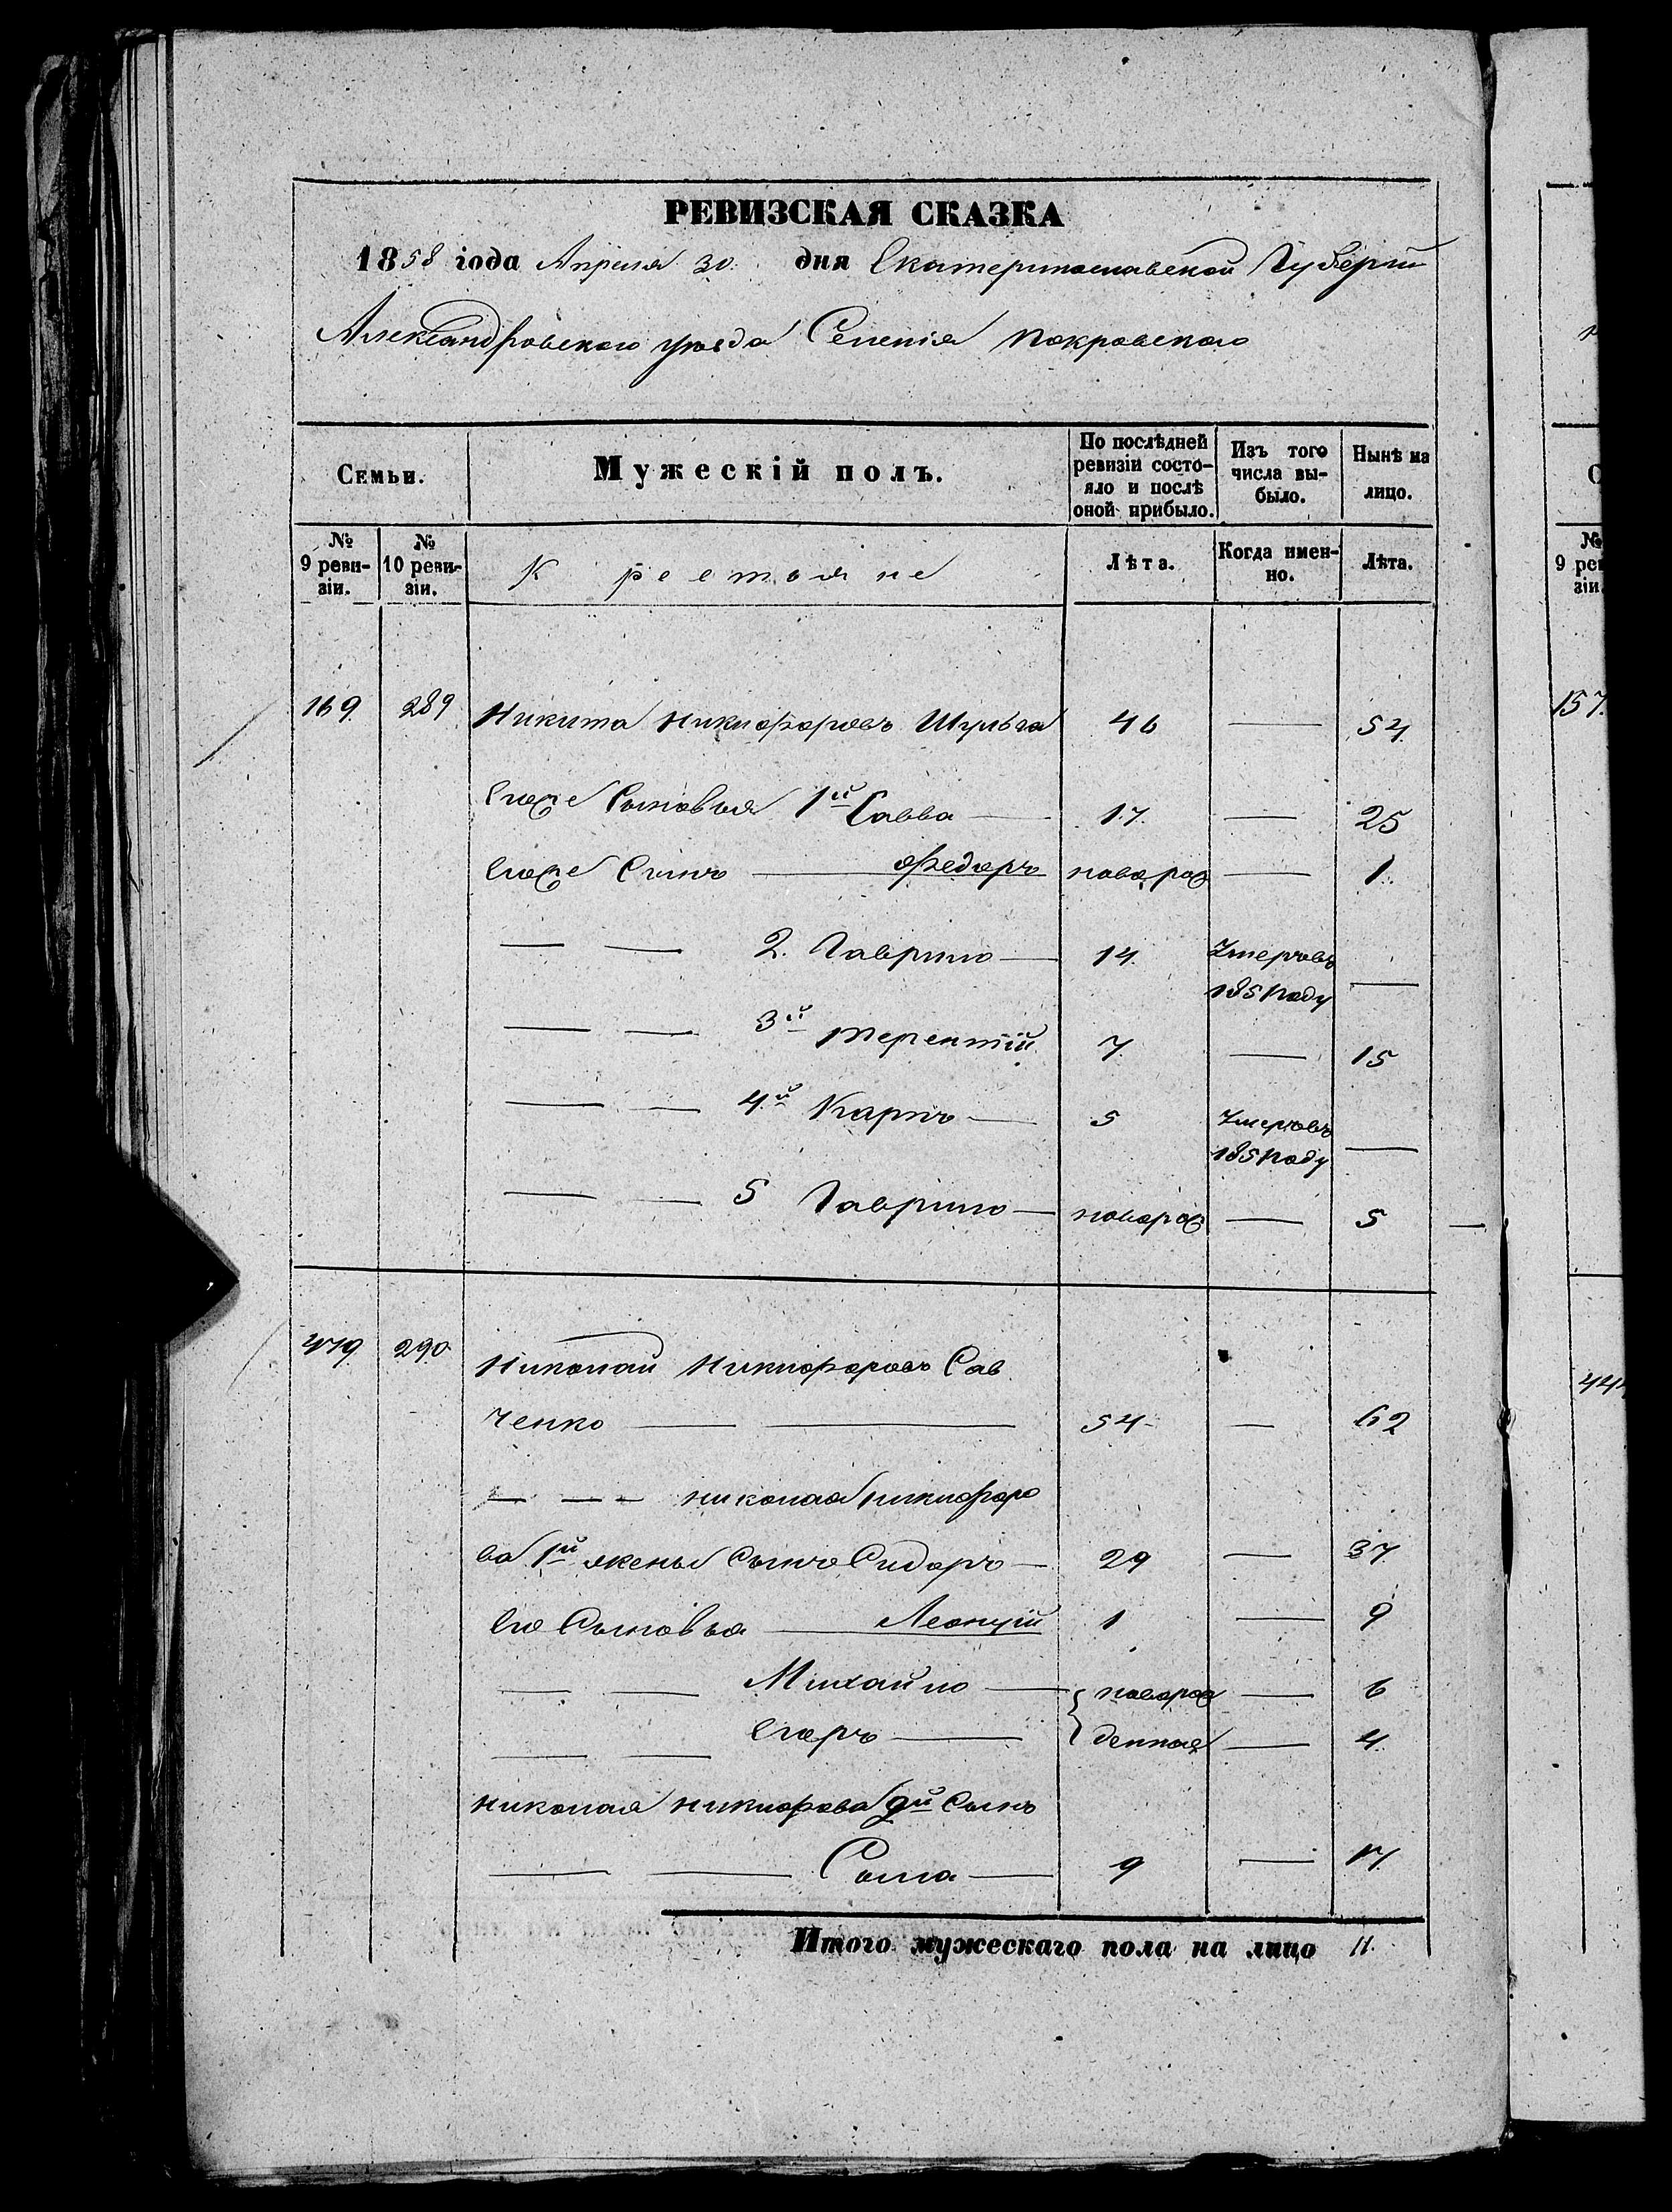 РЕВИЗСКАЯ СКАЗКА
1858 года Апреля 30. дня Екатеринославской Губерніи
Александровского уѣзда Селенія Покровскаго
Семьи.
Мужескій полъ.
По послѣдней ревизіи состояло и послѣ оной прибыло.
Изъ того числа выбыло.
Нынѣ на лицо.
№ 9 ревизіи.
№ 10 ревизіи.
Крестьяне
Лѣта.
Когда именно.
Лѣта.
169. 289 Никита Никифоровъ Шульга 46 — 54.
Егоже Сыновья 1й Савва — 17. — 25
Егоже Сынъ — Федоръ новорож — 1.
— — 2. Гаврило — 14. Умеръ въ
185 году —
— — 3й Терентій 7. — 15
— — 4.й Карпъ — 5 Умеръ въ
185 году —
— — 5 Гаврило — новорож — 5
479 290. Николай Никифоровъ Сав
ченко — — 54 — 62
— — — Николая Никифоро
ва 1й жены Сынъ Сидоръ — 29 — 37
Его Сыновья — Леонтій 1 — 9
— — Михайло — { новорож — 6
— — Егоръ — денные — 4.
Николая Никифорова 2й Сынъ
— — Сыла — 9 — 17
Итого мужескаго пола на лицо 11.
157.
№ 9 рев
зіи
444